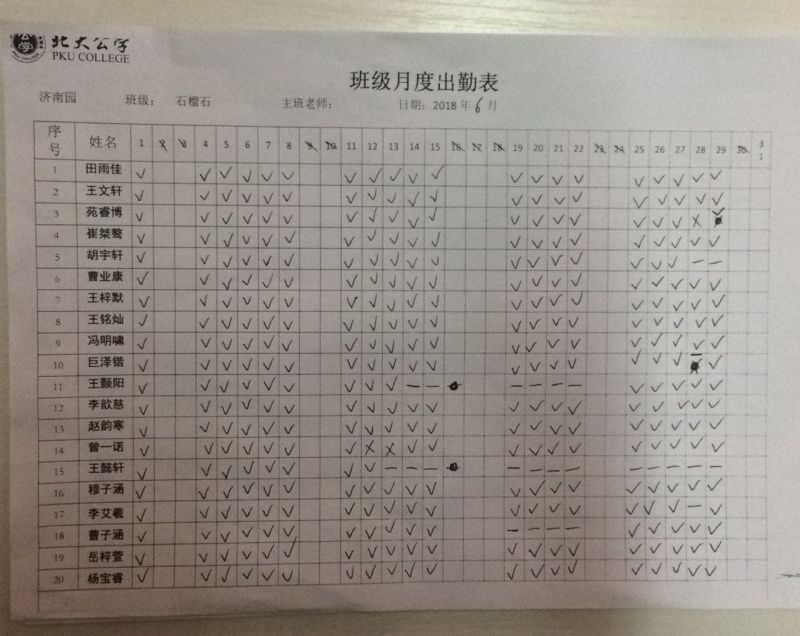 北大公学
PKU COLLEGE
班级月度出勤表
济南园 班级: 石榴石 主班老师: 日期:2018 年 6 月
序号 姓名 1 2 3 4 5 6 7 8 9 10 11 12 13 14 15 16 17 18 19 20 21 22 23 24 25 26 27 28 29 30 31
1 田雨佳 ✓ ✓ ✓ ✓ ✓ ✓ ✓ ✓ ✓ ✓ ✓ ✓ ✓ ✓ ✓ ✓ ✓ ✓ ✓ ✓
2 王文轩 ✓ ✓ ✓ ✓ ✓ ✓ ✓ ✓ ✓ ✓ ✓ ✓ ✓ ✓ ✓ ✓ ✓ ✓ ✓ ✓
3 苑睿博 ✓ ✓ ✓ ✓ ✓ ✓ ✓ ✓ ✓ ✓ ✓ ✓ ✓ ✓ ✓ ✓ ✓ ✓ × ✓
4 崔桀骜 ✓ ✓ ✓ ✓ ✓ ✓ ✓ ✓ ✓ ✓ ✓ ✓ ✓ ✓ ✓ ✓ ✓ ✓ ✓ ✓
5 胡宇轩 ✓ ✓ ✓ ✓ ✓ ✓ ✓ ✓ ✓ ✓ ✓ ✓ ✓ ✓ ✓ ✓ ✓ ✓ — —
6 曹业康 ✓ ✓ ✓ ✓ ✓ ✓ ✓ ✓ ✓ ✓ ✓ ✓ ✓ ✓ ✓ ✓ ✓ ✓ ✓ ✓
7 王梓默 ✓ ✓ ✓ ✓ ✓ ✓ ✓ ✓ ✓ ✓ ✓ ✓ ✓ ✓ ✓ ✓ ✓ ✓ ✓ ✓
8 王铭灿 ✓ ✓ ✓ ✓ ✓ ✓ ✓ ✓ ✓ ✓ ✓ ✓ ✓ ✓ ✓ ✓ ✓ ✓ ✓ ✓
9 冯明啸 ✓ ✓ ✓ ✓ ✓ ✓ ✓ ✓ ✓ ✓ ✓ ✓ ✓ ✓ ✓ ✓ ✓ ✓ ✓ ✓
10 巨泽锴 ✓ ✓ ✓ ✓ ✓ ✓ ✓ ✓ ✓ ✓ ✓ ✓ ✓ ✓ ✓ ✓ ✓ ✓ — ✓
11 王颢阳 ✓ ✓ ✓ ✓ ✓ ✓ ✓ ✓ ✓ — — — — — — ✓ ✓ ✓ ✓ ✓
12 李歆慈 ✓ ✓ ✓ ✓ ✓ ✓ ✓ ✓ ✓ ✓ ✓ ✓ ✓ ✓ ✓ ✓ ✓ ✓ ✓ ✓
13 赵韵寒 ✓ ✓ ✓ ✓ ✓ ✓ ✓ ✓ ✓ ✓ ✓ ✓ ✓ ✓ ✓ ✓ ✓ ✓ ✓ ✓
14 曾一诺 ✓ ✓ ✓ ✓ ✓ ✓ ✓ × × ✓ ✓ ✓ ✓ ✓ ✓ ✓ ✓ ✓ ✓ ✓
15 王懿轩 ✓ ✓ ✓ ✓ ✓ ✓ ✓ ✓ — — — — — — — — — — — —
16 穆子涵 ✓ ✓ ✓ ✓ ✓ ✓ ✓ ✓ ✓ ✓ ✓ ✓ ✓ ✓ ✓ ✓ ✓ ✓ ✓ ✓
17 李艾羲 ✓ ✓ ✓ ✓ ✓ ✓ ✓ ✓ ✓ ✓ ✓ ✓ ✓ ✓ ✓ ✓ ✓ ✓ — ✓
18 曹子涵 ✓ ✓ ✓ ✓ ✓ ✓ ✓ ✓ ✓ ✓ ✓ — — — — ✓ ✓ ✓ ✓ ✓
19 岳梓萱 ✓ ✓ ✓ ✓ ✓ ✓ ✓ ✓ ✓ ✓ ✓ ✓ ✓ ✓ ✓ ✓ ✓ ✓ ✓ ✓
20 杨宝睿 ✓ ✓ ✓ ✓ ✓ ✓ ✓ ✓ ✓ ✓ ✓ ✓ ✓ ✓ ✓ ✓ ✓ ✓ ✓ ✓